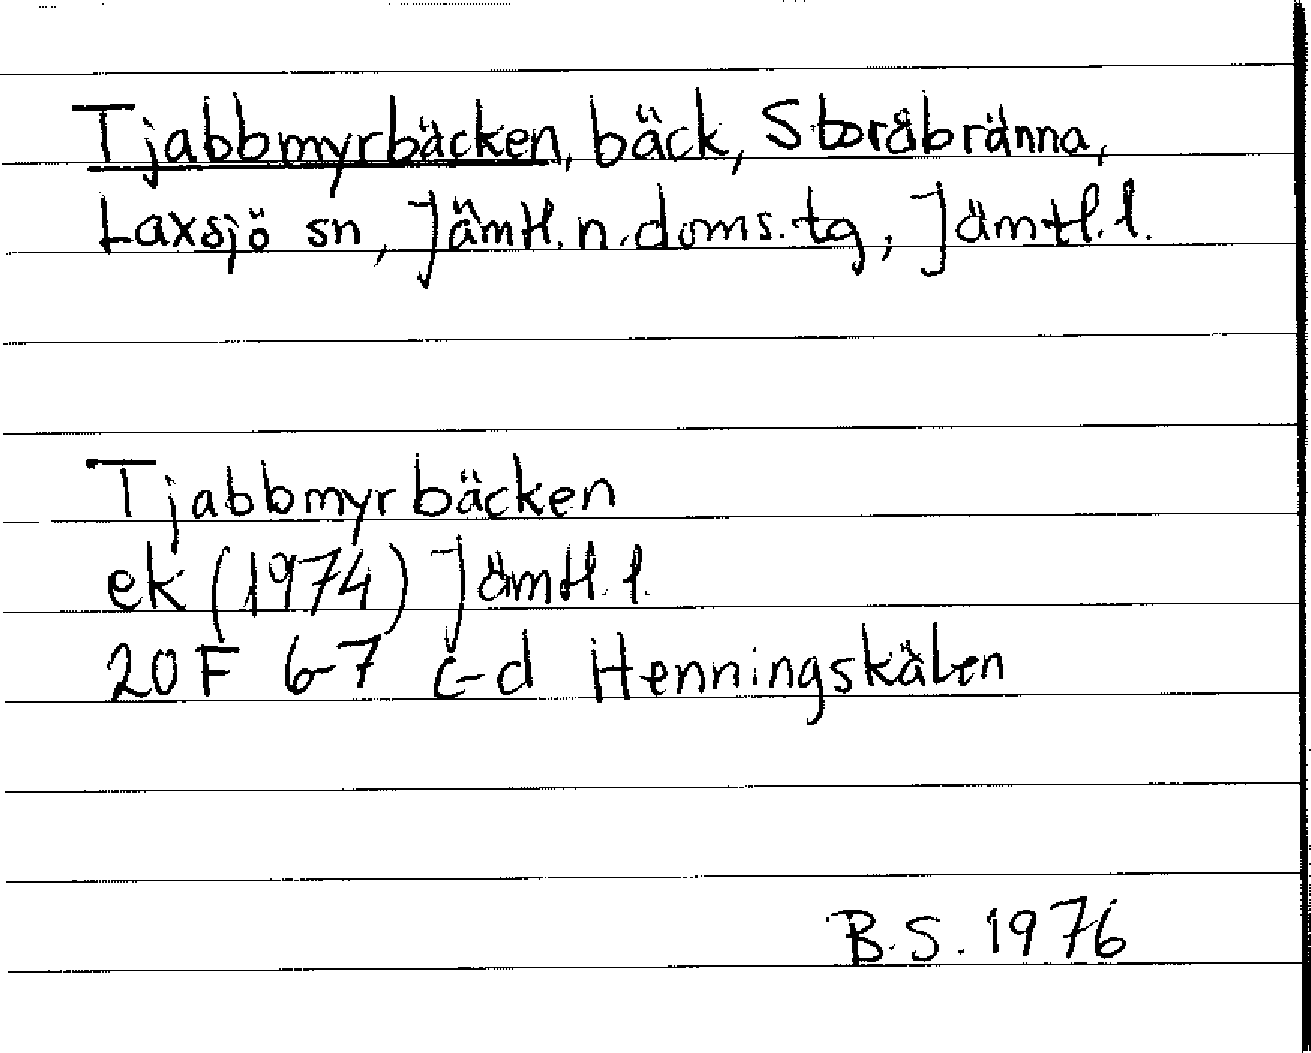 Tjabbmyrbäcken, bäck, Storåbränna,
Laxsjö sn, Jämtl. n. doms. tg, Jämtl. l.
Tjabbmyrbäcken
ek (1974) Jämtl. l.
20 F 6-7 c-d Henningskälen
B.S. 1976